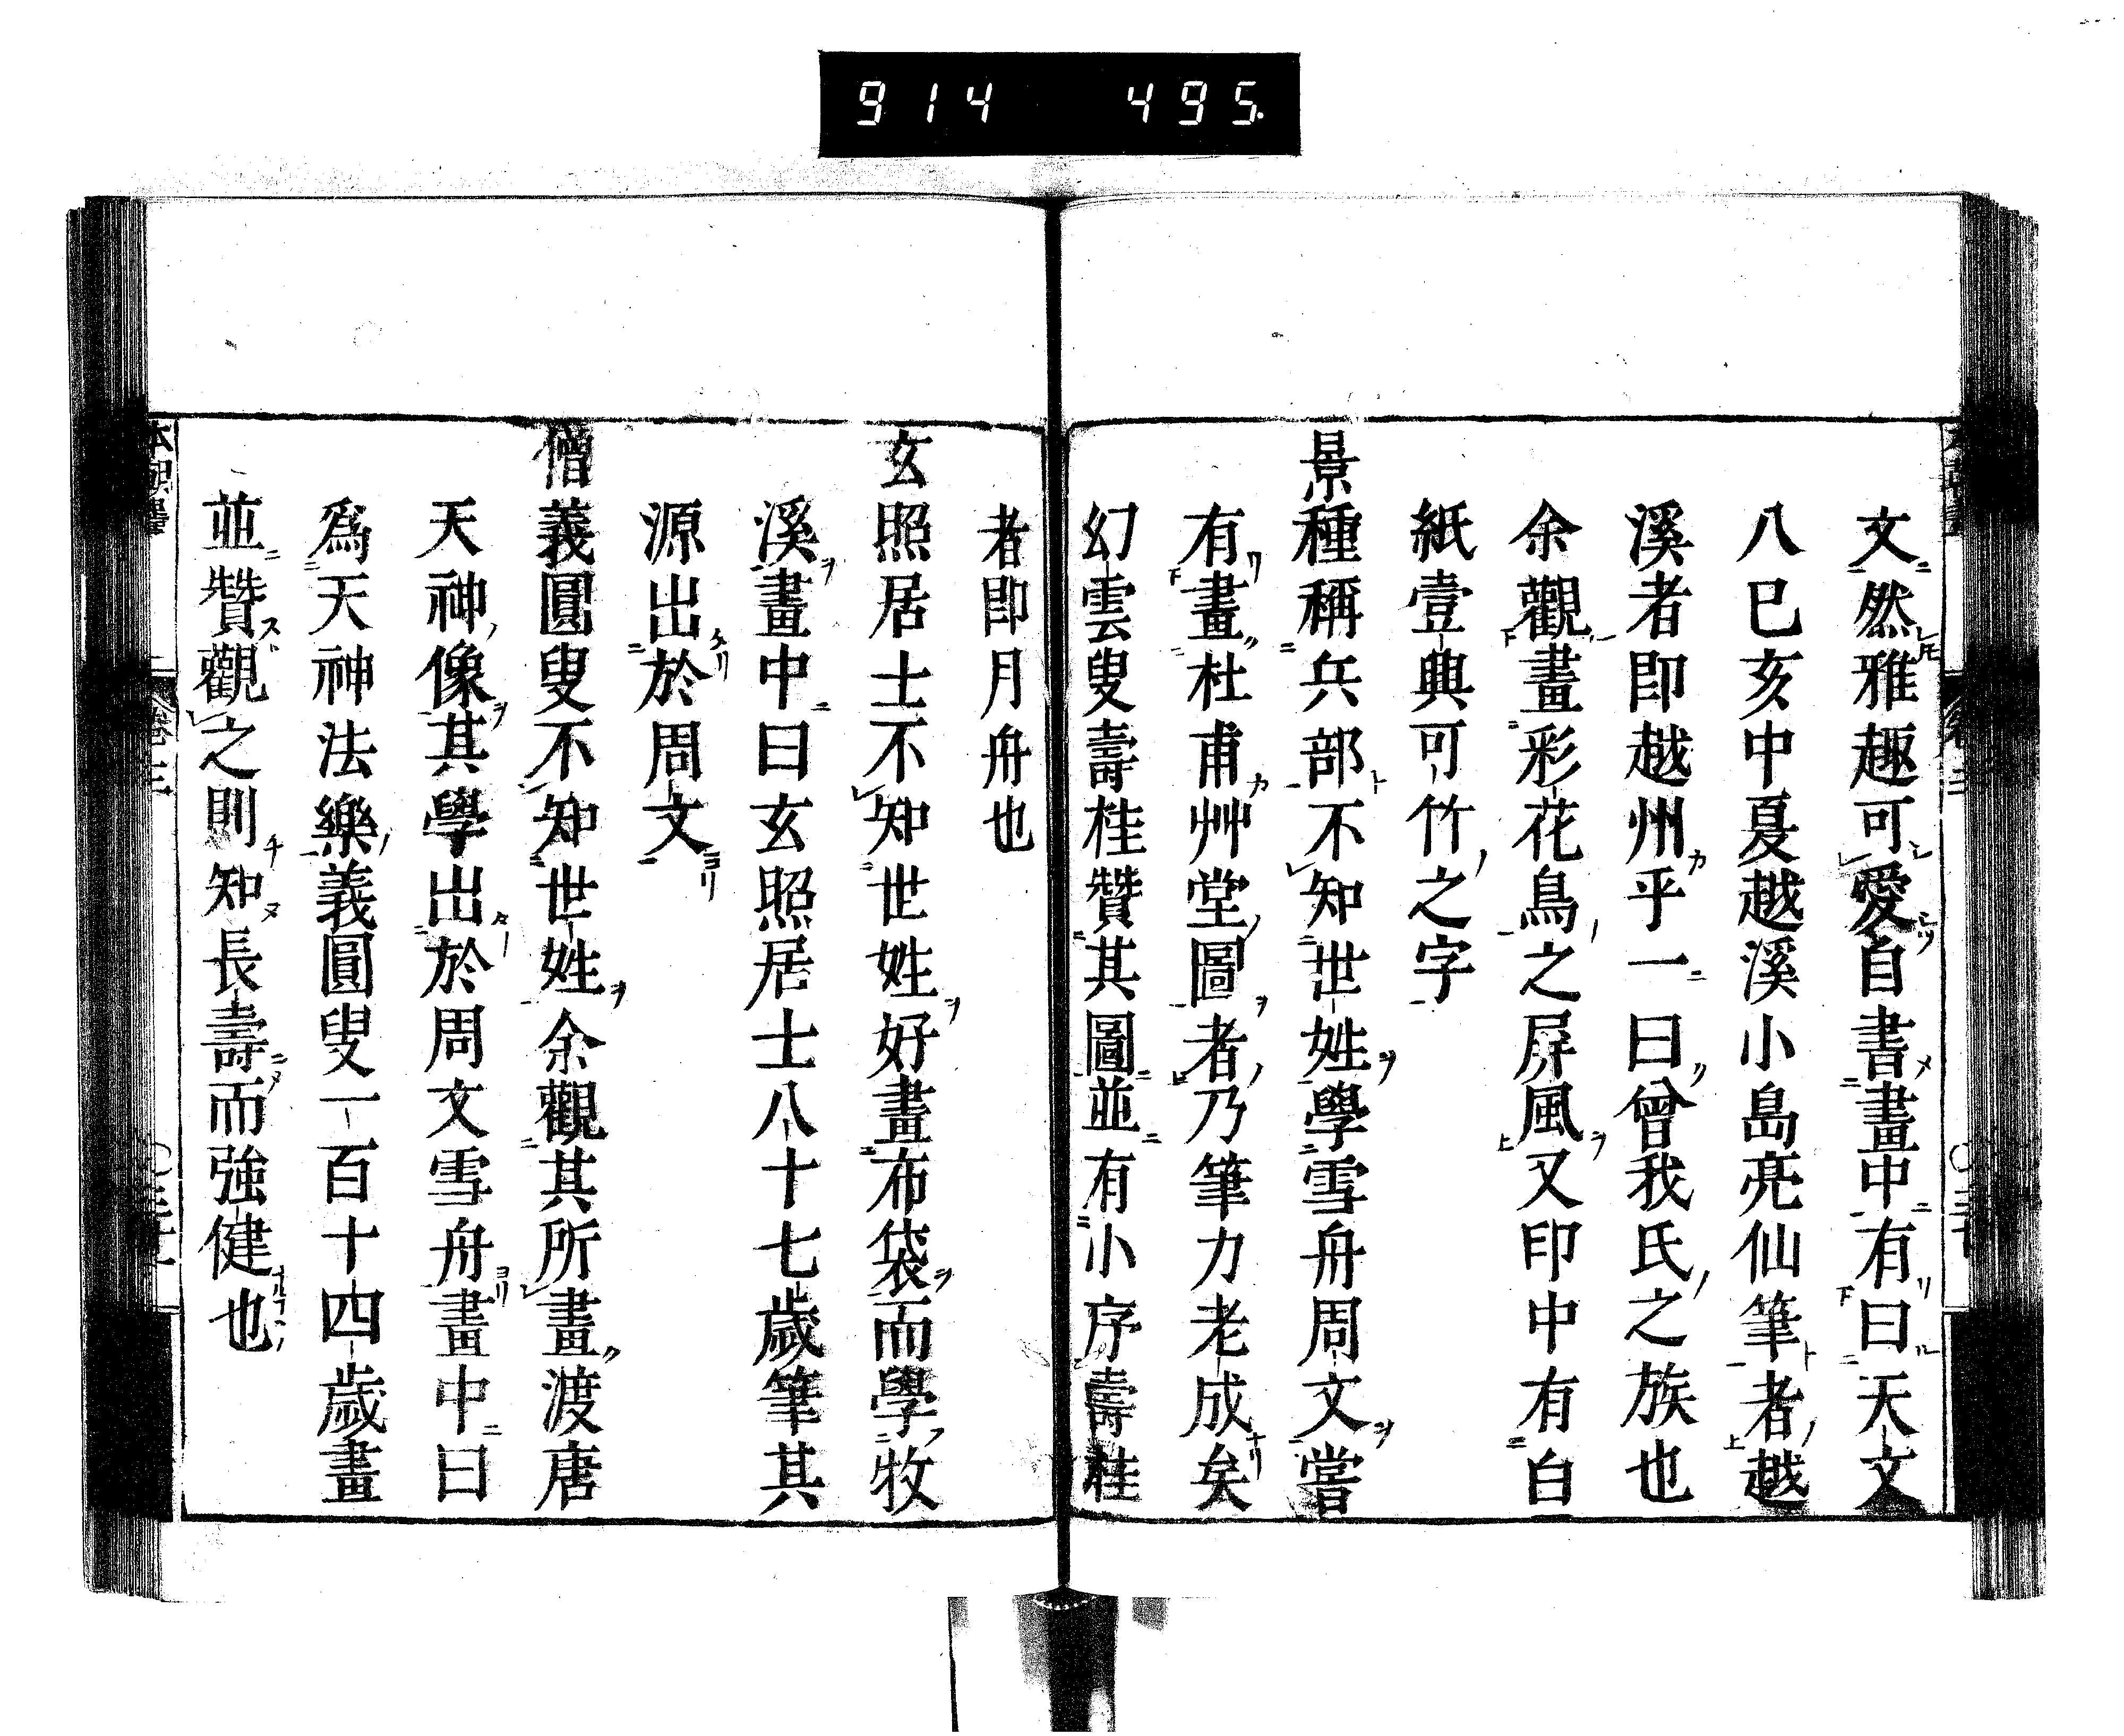 914 495.
文然雅趣可愛自書畫中有曰天文
八巳亥中夏越溪小島亮仙筆者越
溪者即越州乎一曰曾我氏之族也
余觀畫彩花鳥之屏風又印中有白
紙壹與可竹之字
景種稱兵部不知世姓學雪舟周文嘗
有畫杜甫艸堂圖者乃筆力老成矣
幻雲叟壽桂贊其圖並有小序壽桂
者即月舟也
玄照居士不知世姓好畫布袋而學牧
溪畫中曰玄照居士八十七歲筆其
源出於周文
僧義圓叟不知世姓余觀其所畫渡唐
天神像其學出於周文雪舟畫中曰
為天神法樂義圓叟一百十四歲畫
並贊觀之則知長壽而強健也